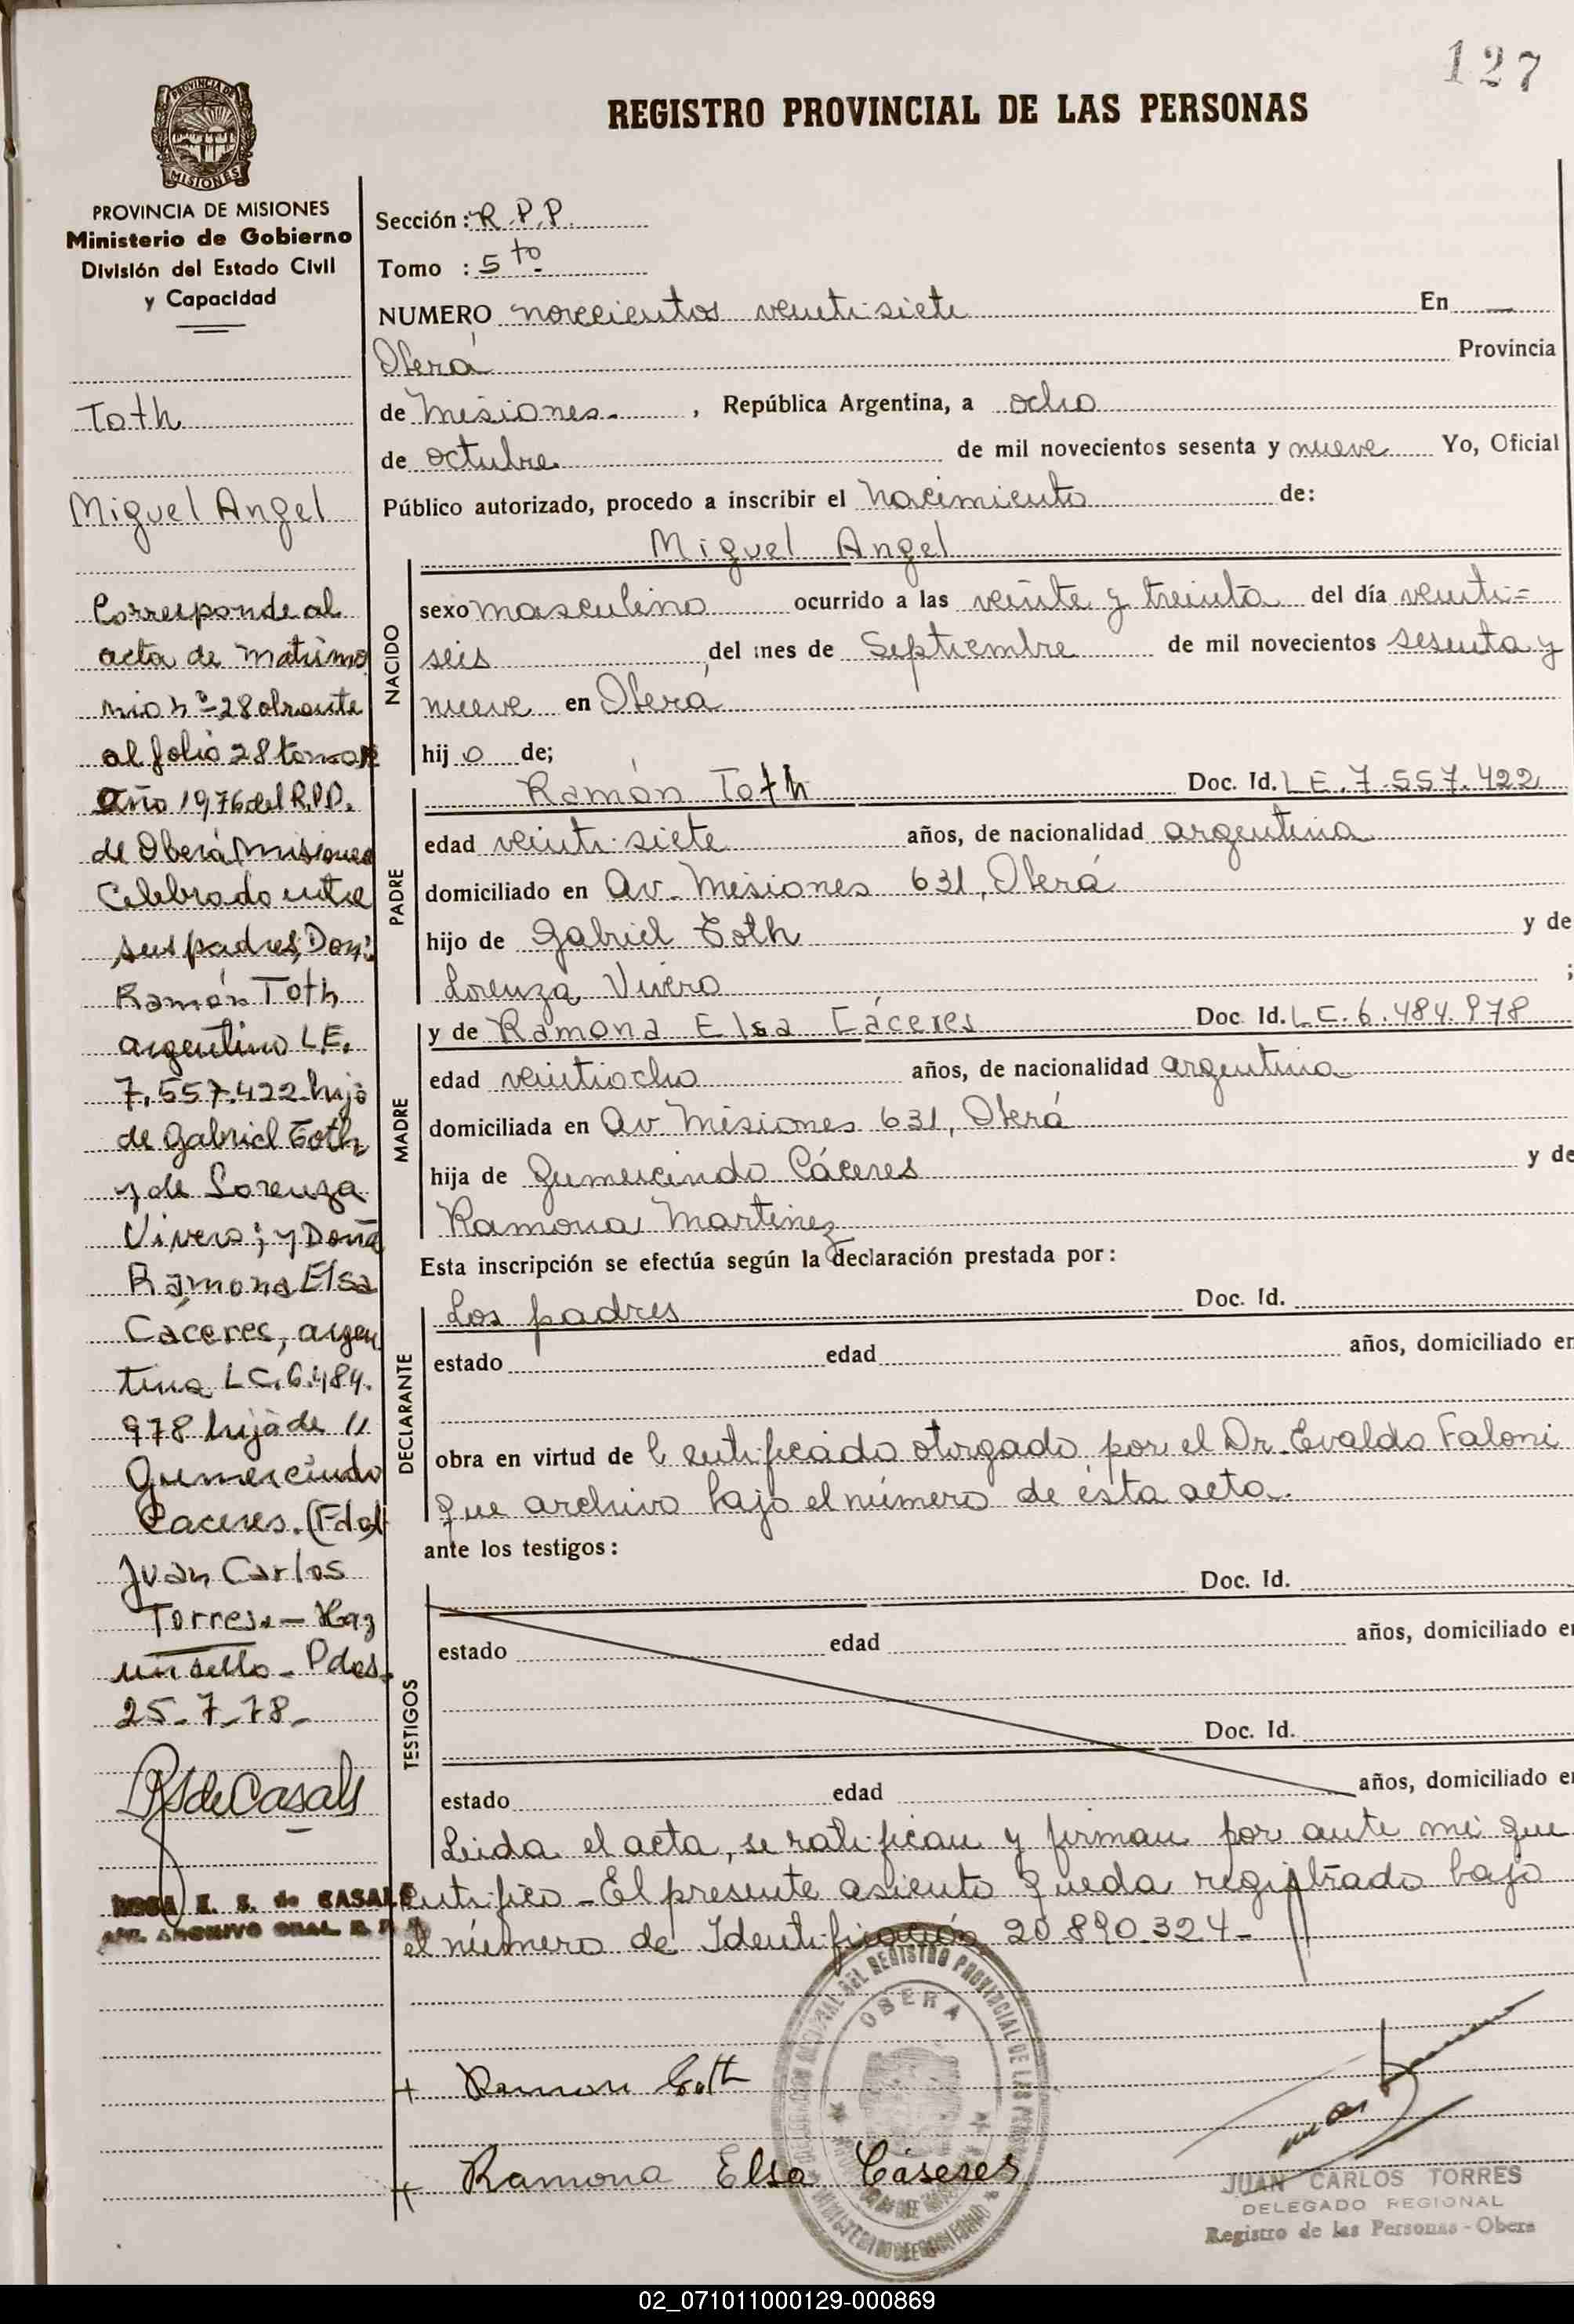 127
REGISTRO PROVINCIAL DE LAS PERSONAS
PROVINCIA DE
MISIONES
PROVINCIA DE MISIONES
Ministerio de Gobierno
División del Estado Civil
y Capacidad
Toth
Miguel Angel
Corresponde al
acta de matrimo
nio nº 28 obrante
al folio 28 tomo
año 1976 del R.P.P.
de Oberá, Misiones
Celebrado entre
sus padres, Don:
Ramón Toth
argentino L.E.
7.557.422 hijo
de Gabriel Toth
y de Lorenza
Vivero; y Doña
Ramona Elsa
Cáceres, argen
tina L.C. 6.484.
978 hija de //
Gumercindo
Caceres. (Fdo)
Juan Carlos
Torres. - Hay
un sello - Pdas.
25-7-78-
RSdeCasals
ROSA E. S. de CASALS
ARCHIVO GRAL. R. P.
Sección : R.P.P.
Tomo : 5to
NUMERO novecientos veinti siete En
Oberá Provincia
de Misiones. , República Argentina, a ocho
de octubre de mil novecientos sesenta y nueve Yo, Oficial
Público autorizado, procedo a inscribir el nacimiento de:
NACIDO
Miguel Angel
sexo masculino ocurrido a las veinte y treinta del día veinti=
seis del mes de Septiembre de mil novecientos sesenta y
nueve en Oberá
hij o de;
PADRE
Ramón Toth Doc. Id. L E. 7.557.422
edad veinti siete años, de nacionalidad argentina
domiciliado en Av. Misiones 631, Oberá
hijo de Gabriel Toth y de
Lorenza Vivero ;
MADRE
y de Ramona Elsa Cáceres Doc. Id. L C. 6.484.978
edad veintiocho años, de nacionalidad argentina
domiciliada en Av Misiones 631, Oberá
hija de Gumercindo Cáceres y de
Ramona Martinez
Esta inscripción se efectúa según la declaración prestada por:
DECLARANTE
Los padres Doc. Id.
estado edad años, domiciliado en
obra en virtud de Certificado otorgado por el Dr. Evaldo Faloni
que archivo bajo el número de ésta acta.
ante los testigos:
TESTIGOS
Doc. Id.
estado edad años, domiciliado en
Doc. Id.
estado edad años, domiciliado en
Leida el acta, se ratifican y firman por ante mi que
certifico - El presente asiento queda registrado bajo
el número de Identificación 20.890.324-
DEL REGISTRO PROVINCIAL DE LAS
OBERA
MINISTERIO DE GOBIERNO
Ramon Toth
Ramona Elsa Cáseres
JUAN CARLOS TORRES
DELEGADO REGIONAL
Registro de las Personas - Obera
02_071011000129-000869